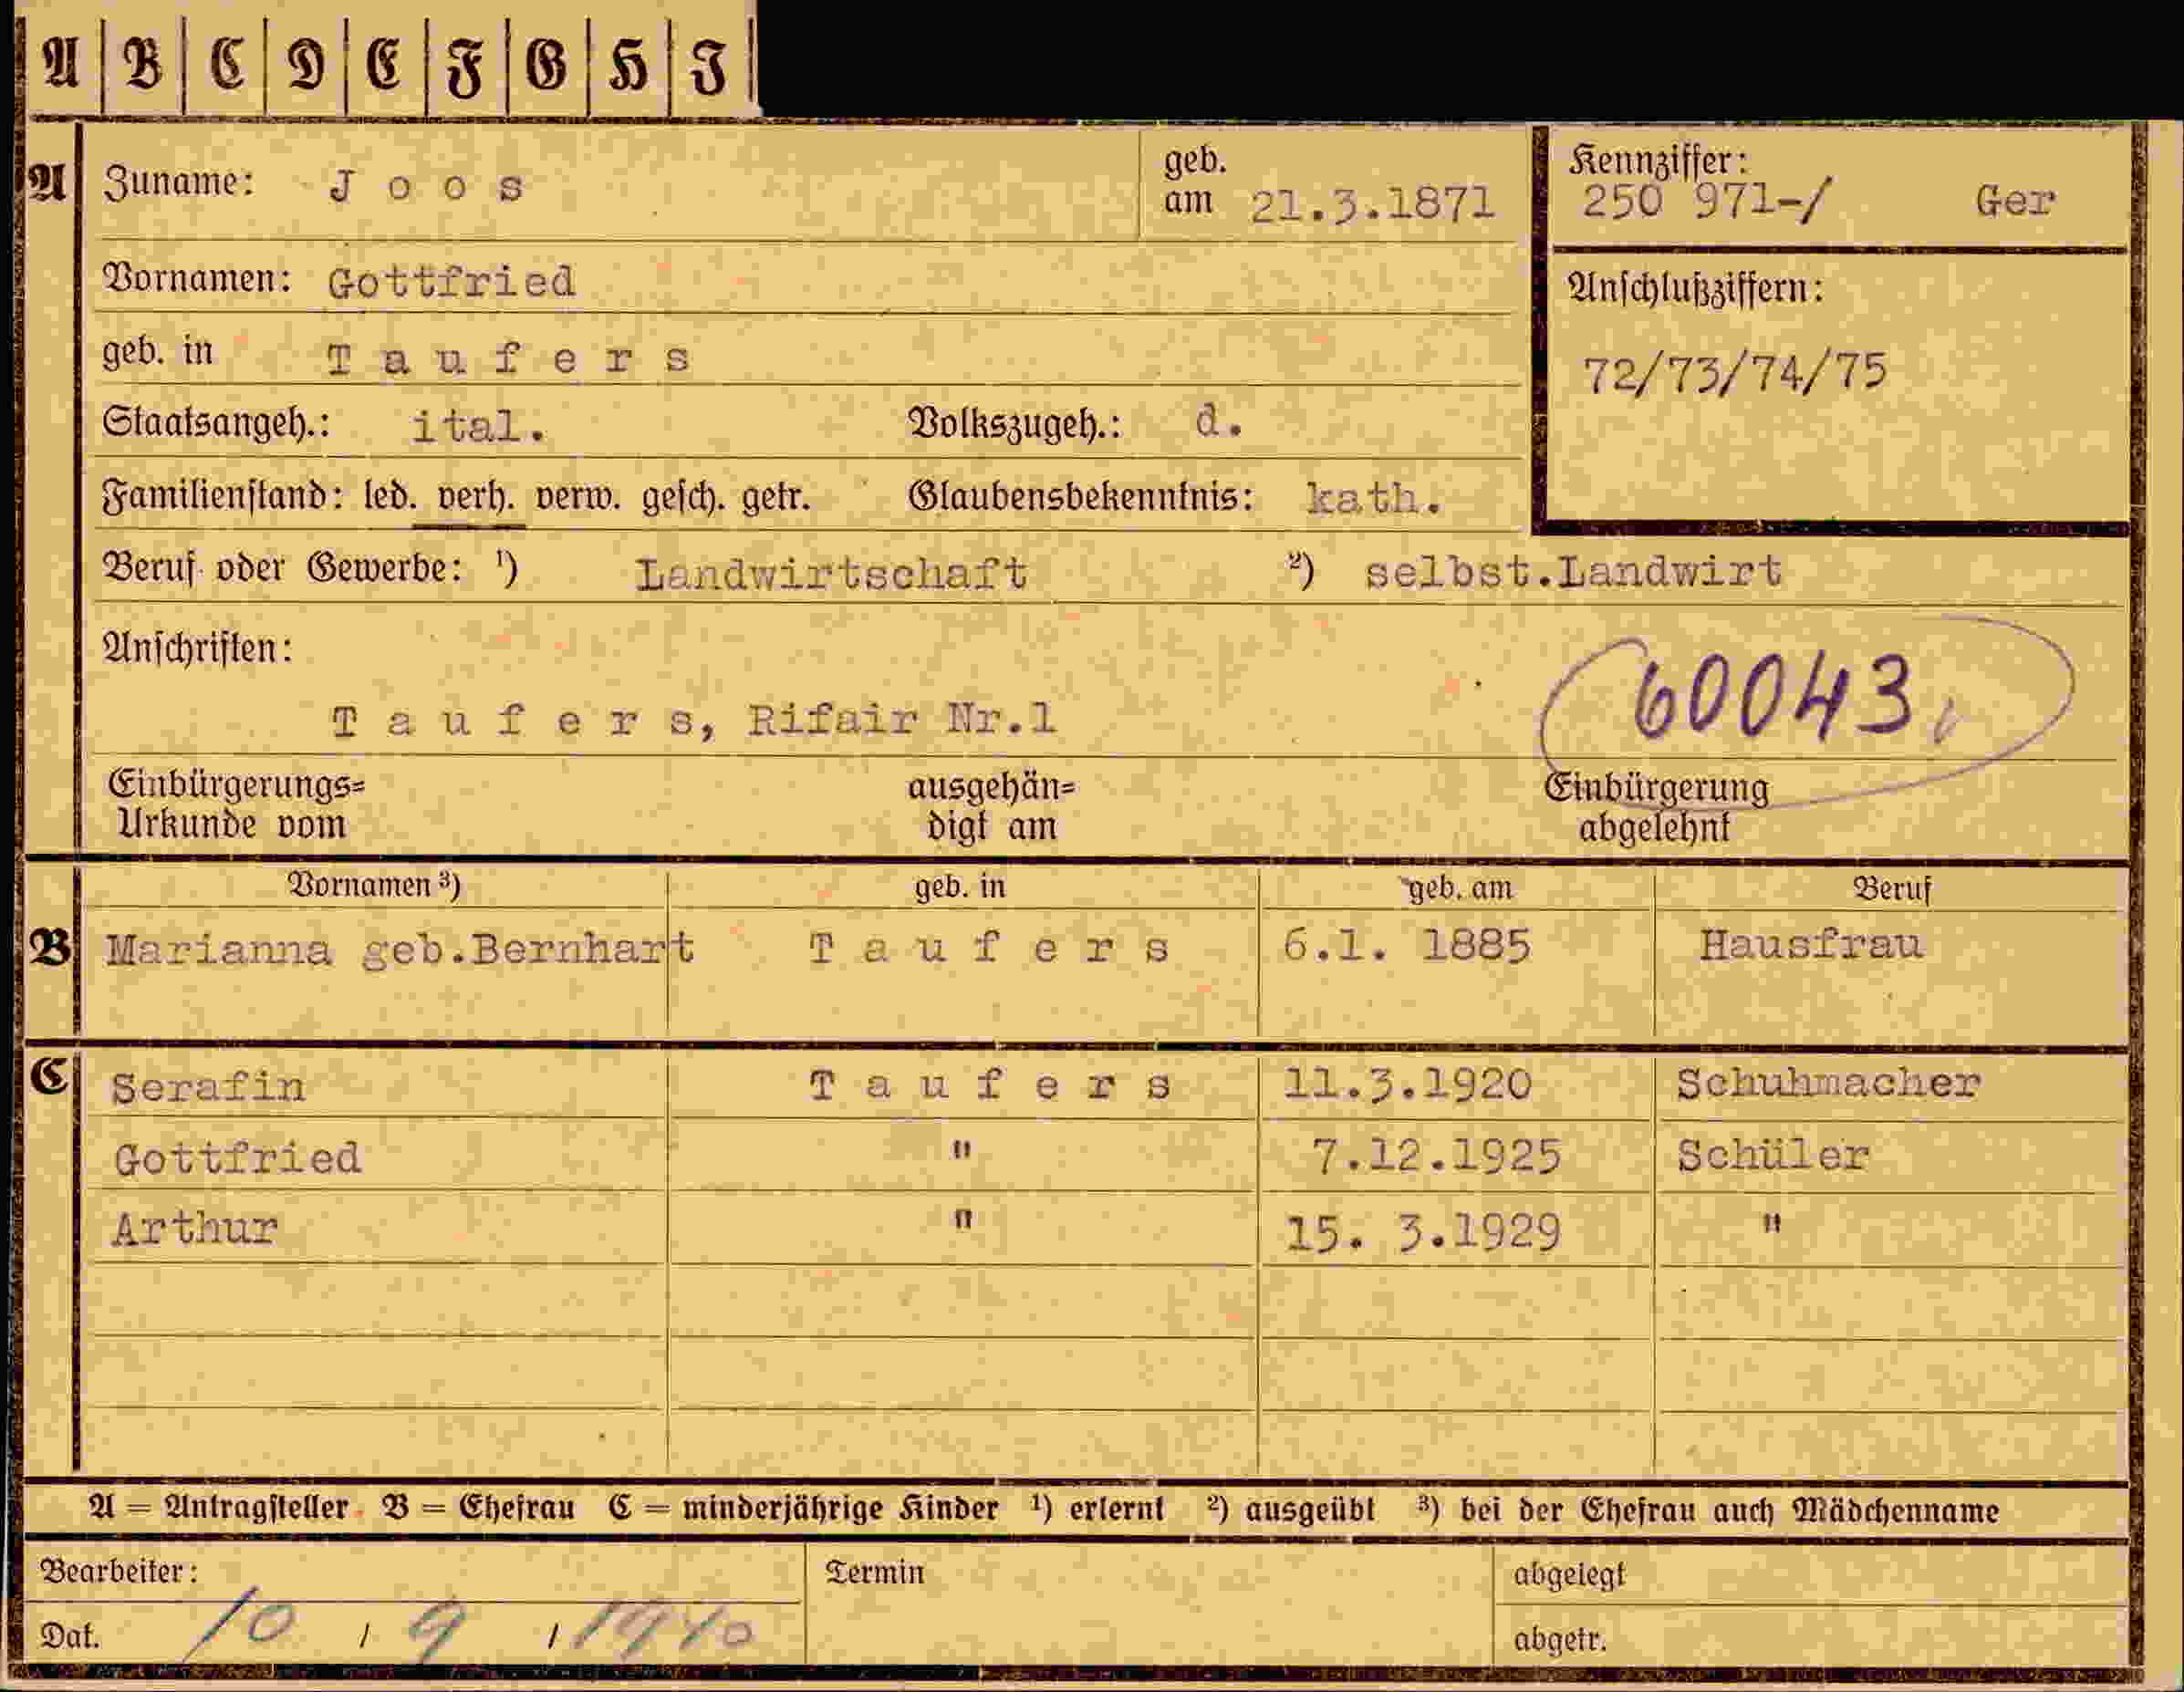 A B C D E F G H I
A Zuname: J o o s geb. am 21.3.1871
Kennziffer:
250 971-/ Ger
Vornamen: Gottfried
Anschlußziffern:
geb. in T a u f e r s
72/73/74/75
Staatsangeh.: ital. Volkszugeh.: d.
Familienstand: led. verh. verw. gesch. getr. Glaubensbekenntnis: kath.
Beruf oder Gewerbe: ¹) Landwirtschaft ²) selbst.Landwirt
Anschriften:
60043
T a u f e r s, Rifair Nr.1
Einbürgerungs= ausgehän= Einbürgerung
Urkunde vom digt am abgelehnt
Vornamen ³) geb. in geb. am Beruf
B Marianna geb.Bernhart T a u f e r s 6.1. 1885 Hausfrau
C Serafin T a u f e r s 11.3.1920 Schuhmacher
Gottfried " 7.12.1925 Schüler
Arthur " 15. 3.1929 "
A = Antragsteller B = Ehefrau C = minderjährige Kinder ¹) erlernt ²) ausgeübt ³) bei der Ehefrau auch Mädchenname
Bearbeiter: Termin abgelegt
Dat. 10 / 9 / 1940 abgetr.